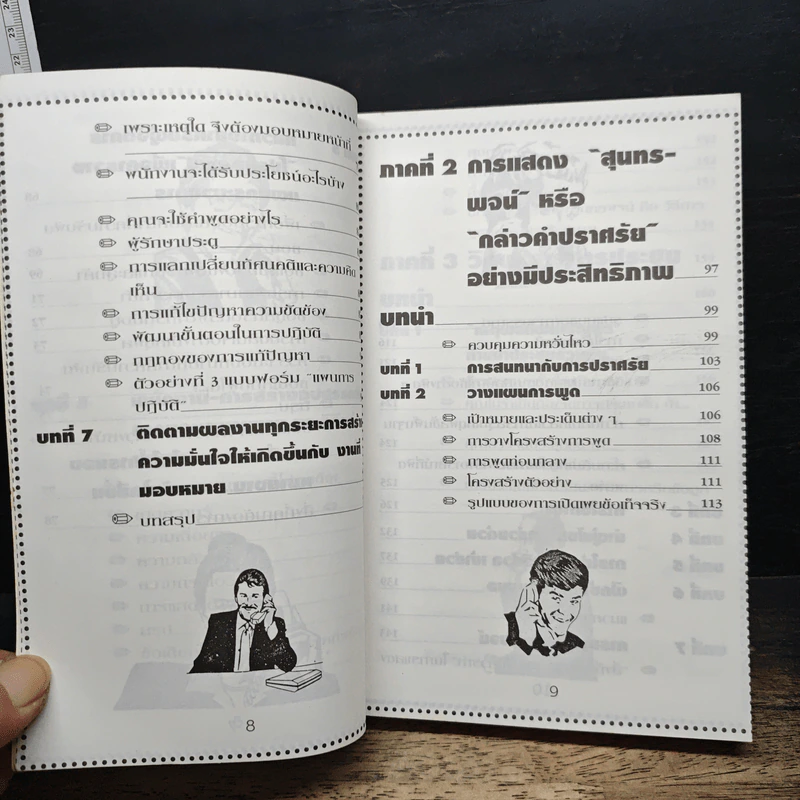 เพราะเหตุใด จึงต้องมอบหมายหน้าที่
พนักงานจะได้รับประโยชน์อะไรบ้าง
คุณจะให้คำพูดอย่างไร
ผู้รักษาประตู
การแลกเปลี่ยนทัศนคติและความคิด
เห็น
การแก้ไขปัญหาความขัดข้อง
พัฒนาขั้นตอนในการปฏิบัติ
กฎทองของการแก้ปัญหา
ตัวอย่างที่ 3 แบบฟอร์ม "แผนการ
ปฏิบัติ"
บทที่ 7 ติดตามผลงานทุกระยะการสร้าง
ความมั่นใจให้เกิดขึ้นกับ งานที่
มอบหมาย
บทสรุป
8
ภาคที่ 2 การแสดง "สุนทร-
พจน์" หรือ
"กล่าวคำปราศรัย"
อย่างมีประสิทธิภาพ 97
บทนำ 99
ควบคุมความหวั่นไหว 99
บทที่ 1 การสนทนากับการปราศรัย 103
บทที่ 2 วางแผนการพูด 106
เป้าหมายและประเด็นต่าง ๆ 106
การวางโครงสร้างการพูด 108
การพูดก่อนกลาง 111
โครงสร้างตัวอย่าง 111
รูปแบบของการเปิดเผยข้อเท็จจริง 113
9
22
23
24